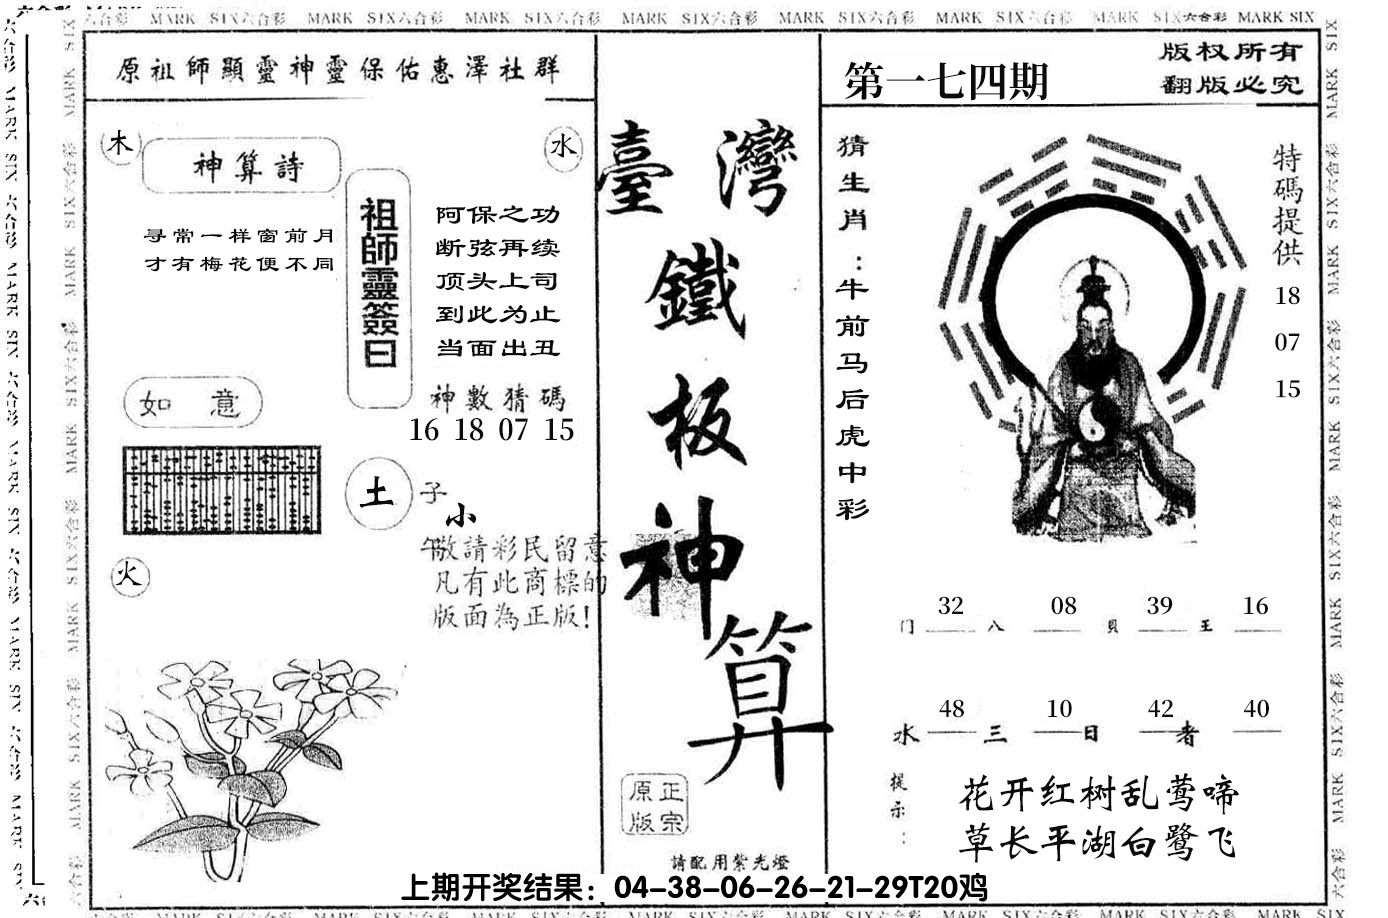 MARK SIX六合彩 MARK SIX六合彩 MARK SIX六合彩 MARK SIX六合彩 MARK SIX六合彩 MARK SIX六合彩 MARK SIX六合彩 MARK SIX
原祖師顯靈神靈保佑惠澤社群
木
水
神算詩
寻常一样窗前月
才有梅花便不同
祖師靈簽曰
阿保之功
断弦再续
顶头上司
到此为止
当面出丑
神數猜碼
16 18 07 15
如意
土
子
小
午
敬請彩民留意
凡有此商標的
版面為正版!
火
臺灣
鐵
板
神
算
正宗
原版
請配用紫光燈
第一七四期
版权所有
翻版必究
猜生肖：牛前马后虎中彩
特碼提供
18
07
15
32 08 39 16
门 八 貝 王
48 10 42 40
水 三 日 者
提示：
花开红树乱莺啼
草长平湖白鹭飞
上期开奖结果：04-38-06-26-21-29T20鸡